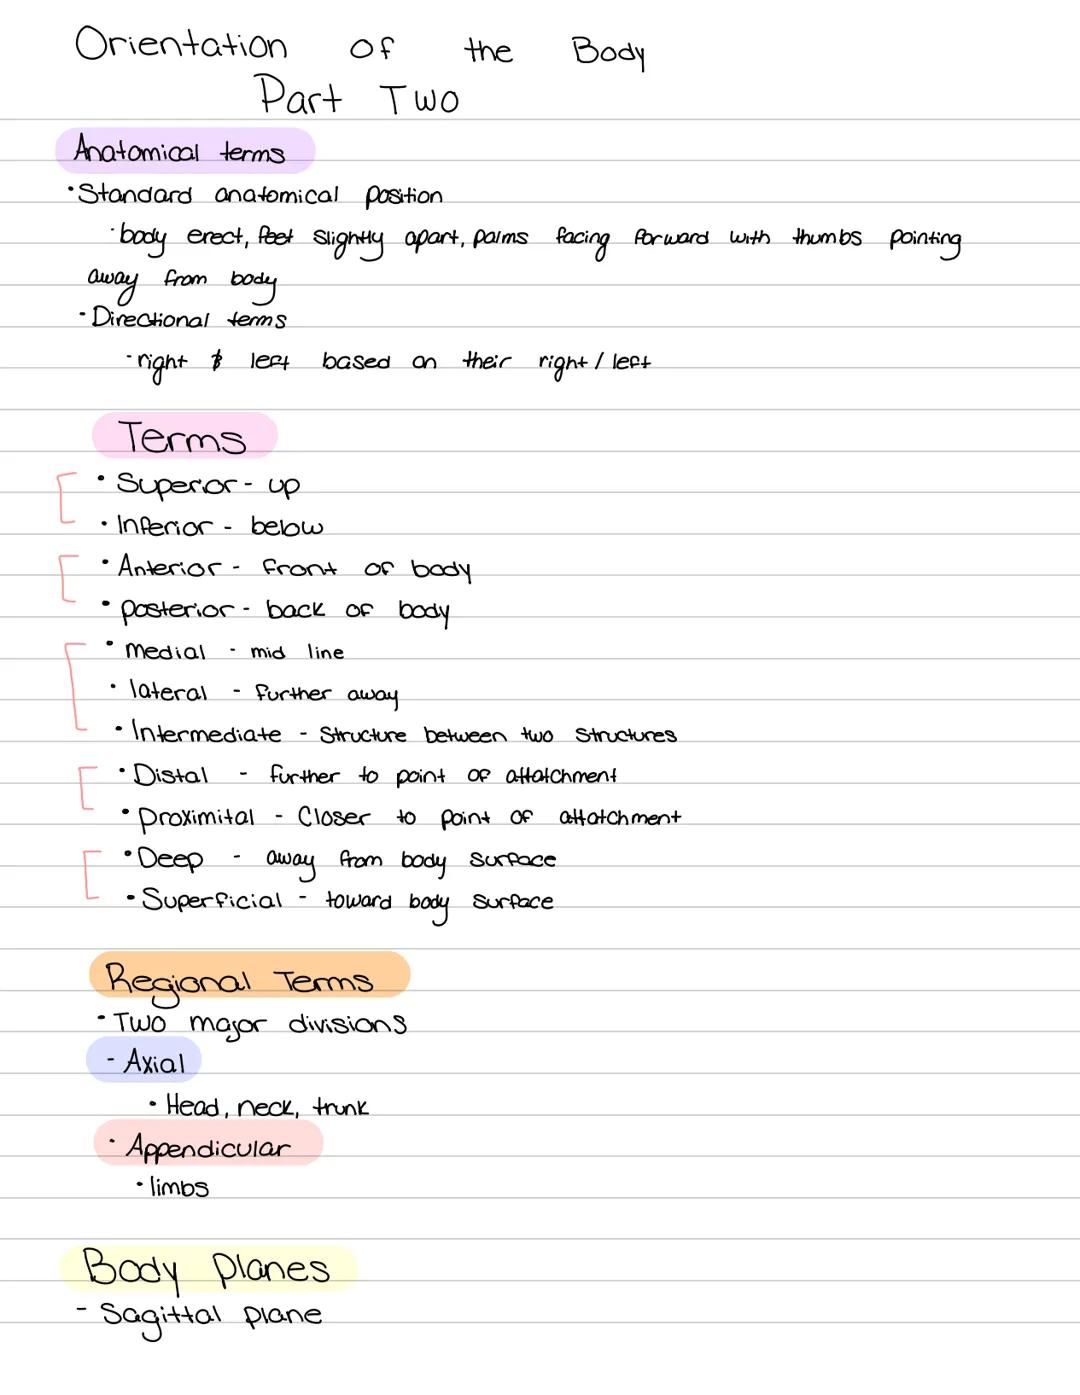 Orientation of the Body
Part Two
Anatomical terms
• Standard anatomical position
• body erect, feet slightly apart, palms facing forward with thumbs pointing
away from body
• Directional terms
• right & left based on their right / left
Terms
• Superior - up
• Inferior - below
• Anterior - front of body
• posterior - back of body
• medial - mid line
• lateral - further away
• Intermediate - Structure between two structures
• Distal - further to point of attatchment
• proximital - Closer to point of attatchment
• Deep - away from body surface
• Superficial - toward body surface
Regional Terms
• Two major divisions
- Axial
• Head, neck, trunk
• Appendicular
• limbs
Body planes
- Sagittal plane